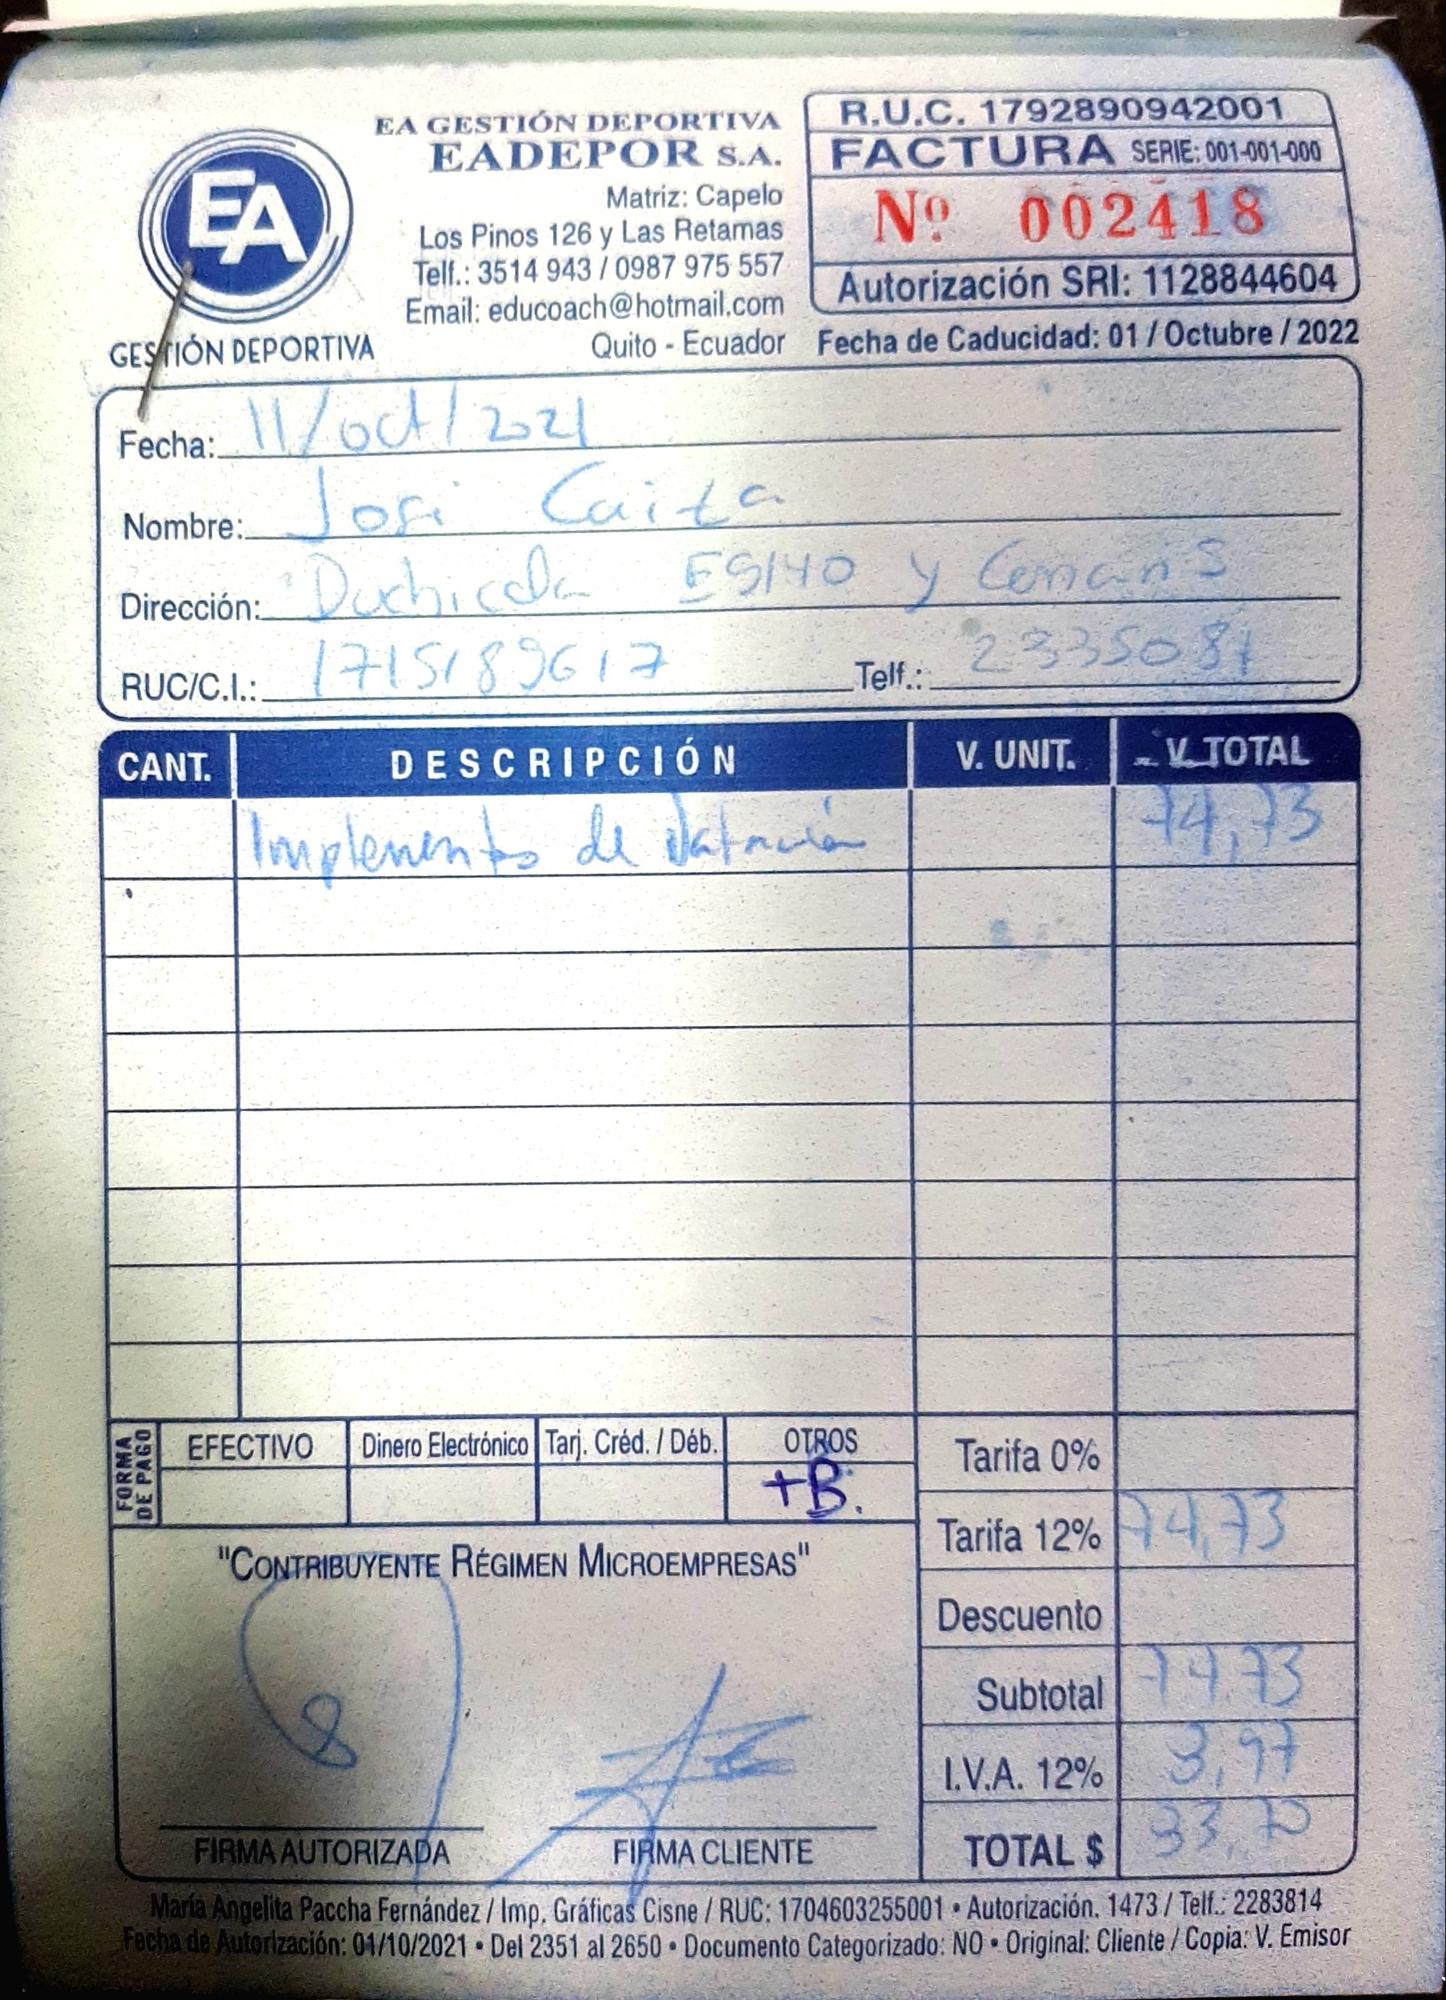 EA GESTIÓN DEPORTIVA
EADEPOR S.A.
Matriz: Capelo
Los Pinos 126 y Las Retamas
Telf.: 3514 943 / 0987 975 557
Email: educoach@hotmail.com
Quito - Ecuador
EA
GESTIÓN DEPORTIVA
R.U.C. 1792890942001
FACTURA SERIE: 001-001-000
Nº 002418
Autorización SRI: 1128844604
Fecha de Caducidad: 01 / Octubre / 2022
Fecha: 11/oct/2021
Nombre: José
Dirección: y
RUC/C.I.: 1715189617 Telf.: 2335081
CANT. DESCRIPCIÓN V. UNIT. V. TOTAL
Implementos de Natación 74,73
FORMA DE PAGO
EFECTIVO Dinero Electrónico Tarj. Créd. / Déb. OTROS
+B.
Tarifa 0%
Tarifa 12% 74,73
Descuento
Subtotal 74,73
I.V.A. 12%
TOTAL $
"CONTRIBUYENTE RÉGIMEN MICROEMPRESAS"
FIRMA AUTORIZADA FIRMA CLIENTE
María Angelita Paccha Fernández / Imp. Gráficas Cisne / RUC: 1704603255001 • Autorización. 1473 / Telf.: 2283814
Fecha de Autorización: 01/10/2021 • Del 2351 al 2650 • Documento Categorizado: NO • Original: Cliente / Copia: V. Emisor